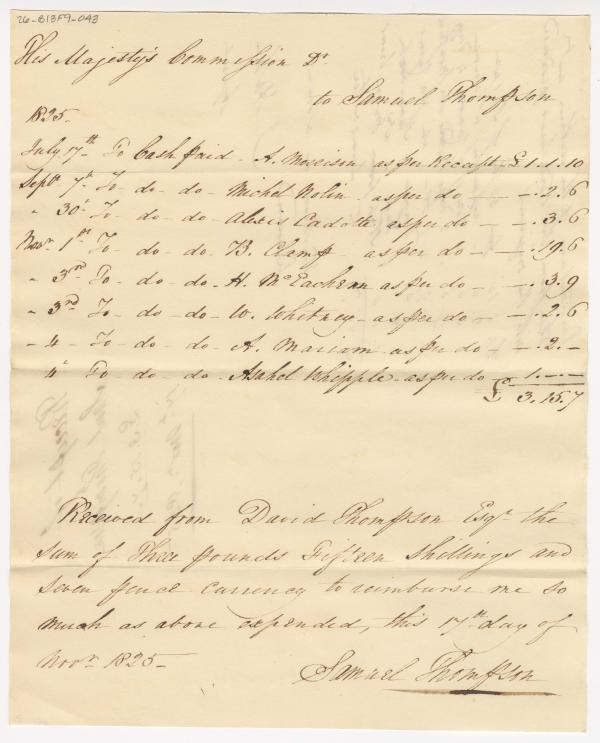 26-B13F9-043
His Majesty's Commission Dr
to Samuel Thompson
1825-
July 17th To Cash paid - A. Morrison as per Receipt £1.1.10
Septr 7th To - do - do - Michel Nolin as per do - - . 2.6
" 30th To - do - do - Alexis Cadotte as per do - - . 3.6
Novr 1st To - do - do - B. Clamp as per do - - . 19.6
" 3rd To - do - do - H. McEachern as per do - - . 3.9
" 3rd To - do - do - W. Whitney as per do - - . 2.6
" 4 To - do - do - A. Mariam as per do - - . 2. -
4th To - do - do - Asahel Whipple as per do - 1. - -
£ 3.15.7
Received from David Thompson Esqr the
sum of Three pounds Fifteen Shillings and
seven pence currency to reimburse me so
much as above expended, this 17th day of
Novr 1825 -
Samuel Thompson